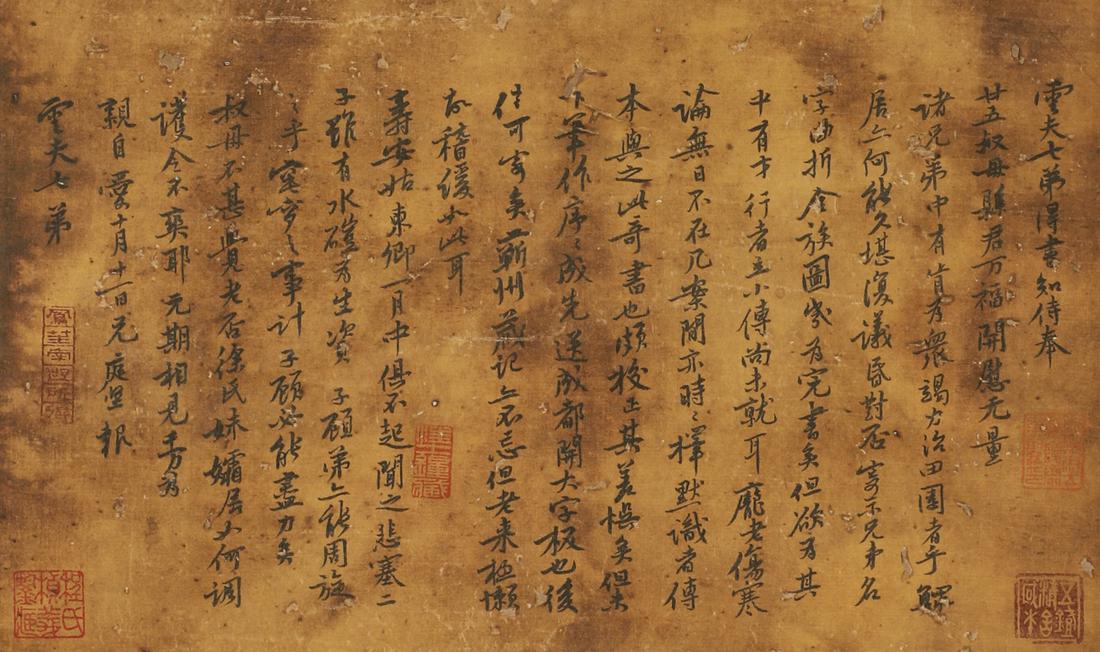 雲夫七弟得書知侍奉
廿五叔母縣君万福開慰无量
諸兄弟中有肯為衆竭力治田園者乎鰥
居亦何能久堪復議昏對否寄示兄弟名
字曲折合族圖幾為完書矣但欲為其
中有才行者立小傳尚未就耳龐老傷寒
論無日不在几案間亦時時擇默識者傳
本與之此奇書也頗校正其差悞矣但未
下筆作序序成先送成都開大字板也後
信可寄矣蘄州藏記亦不忘但老来極懶
故稽緩如此耳
壽安姑東卿一月中俱不起聞之悲塞二
子雖有水磑為生資子顧弟亦能周旋
之乎窀穸之事計子顧必能盡力矣
叔母不甚覺老否徐氏妹孀居如何調
護令不爽耶元期相見千万為
親自愛十月十一日兄庭堅報
雲夫七弟